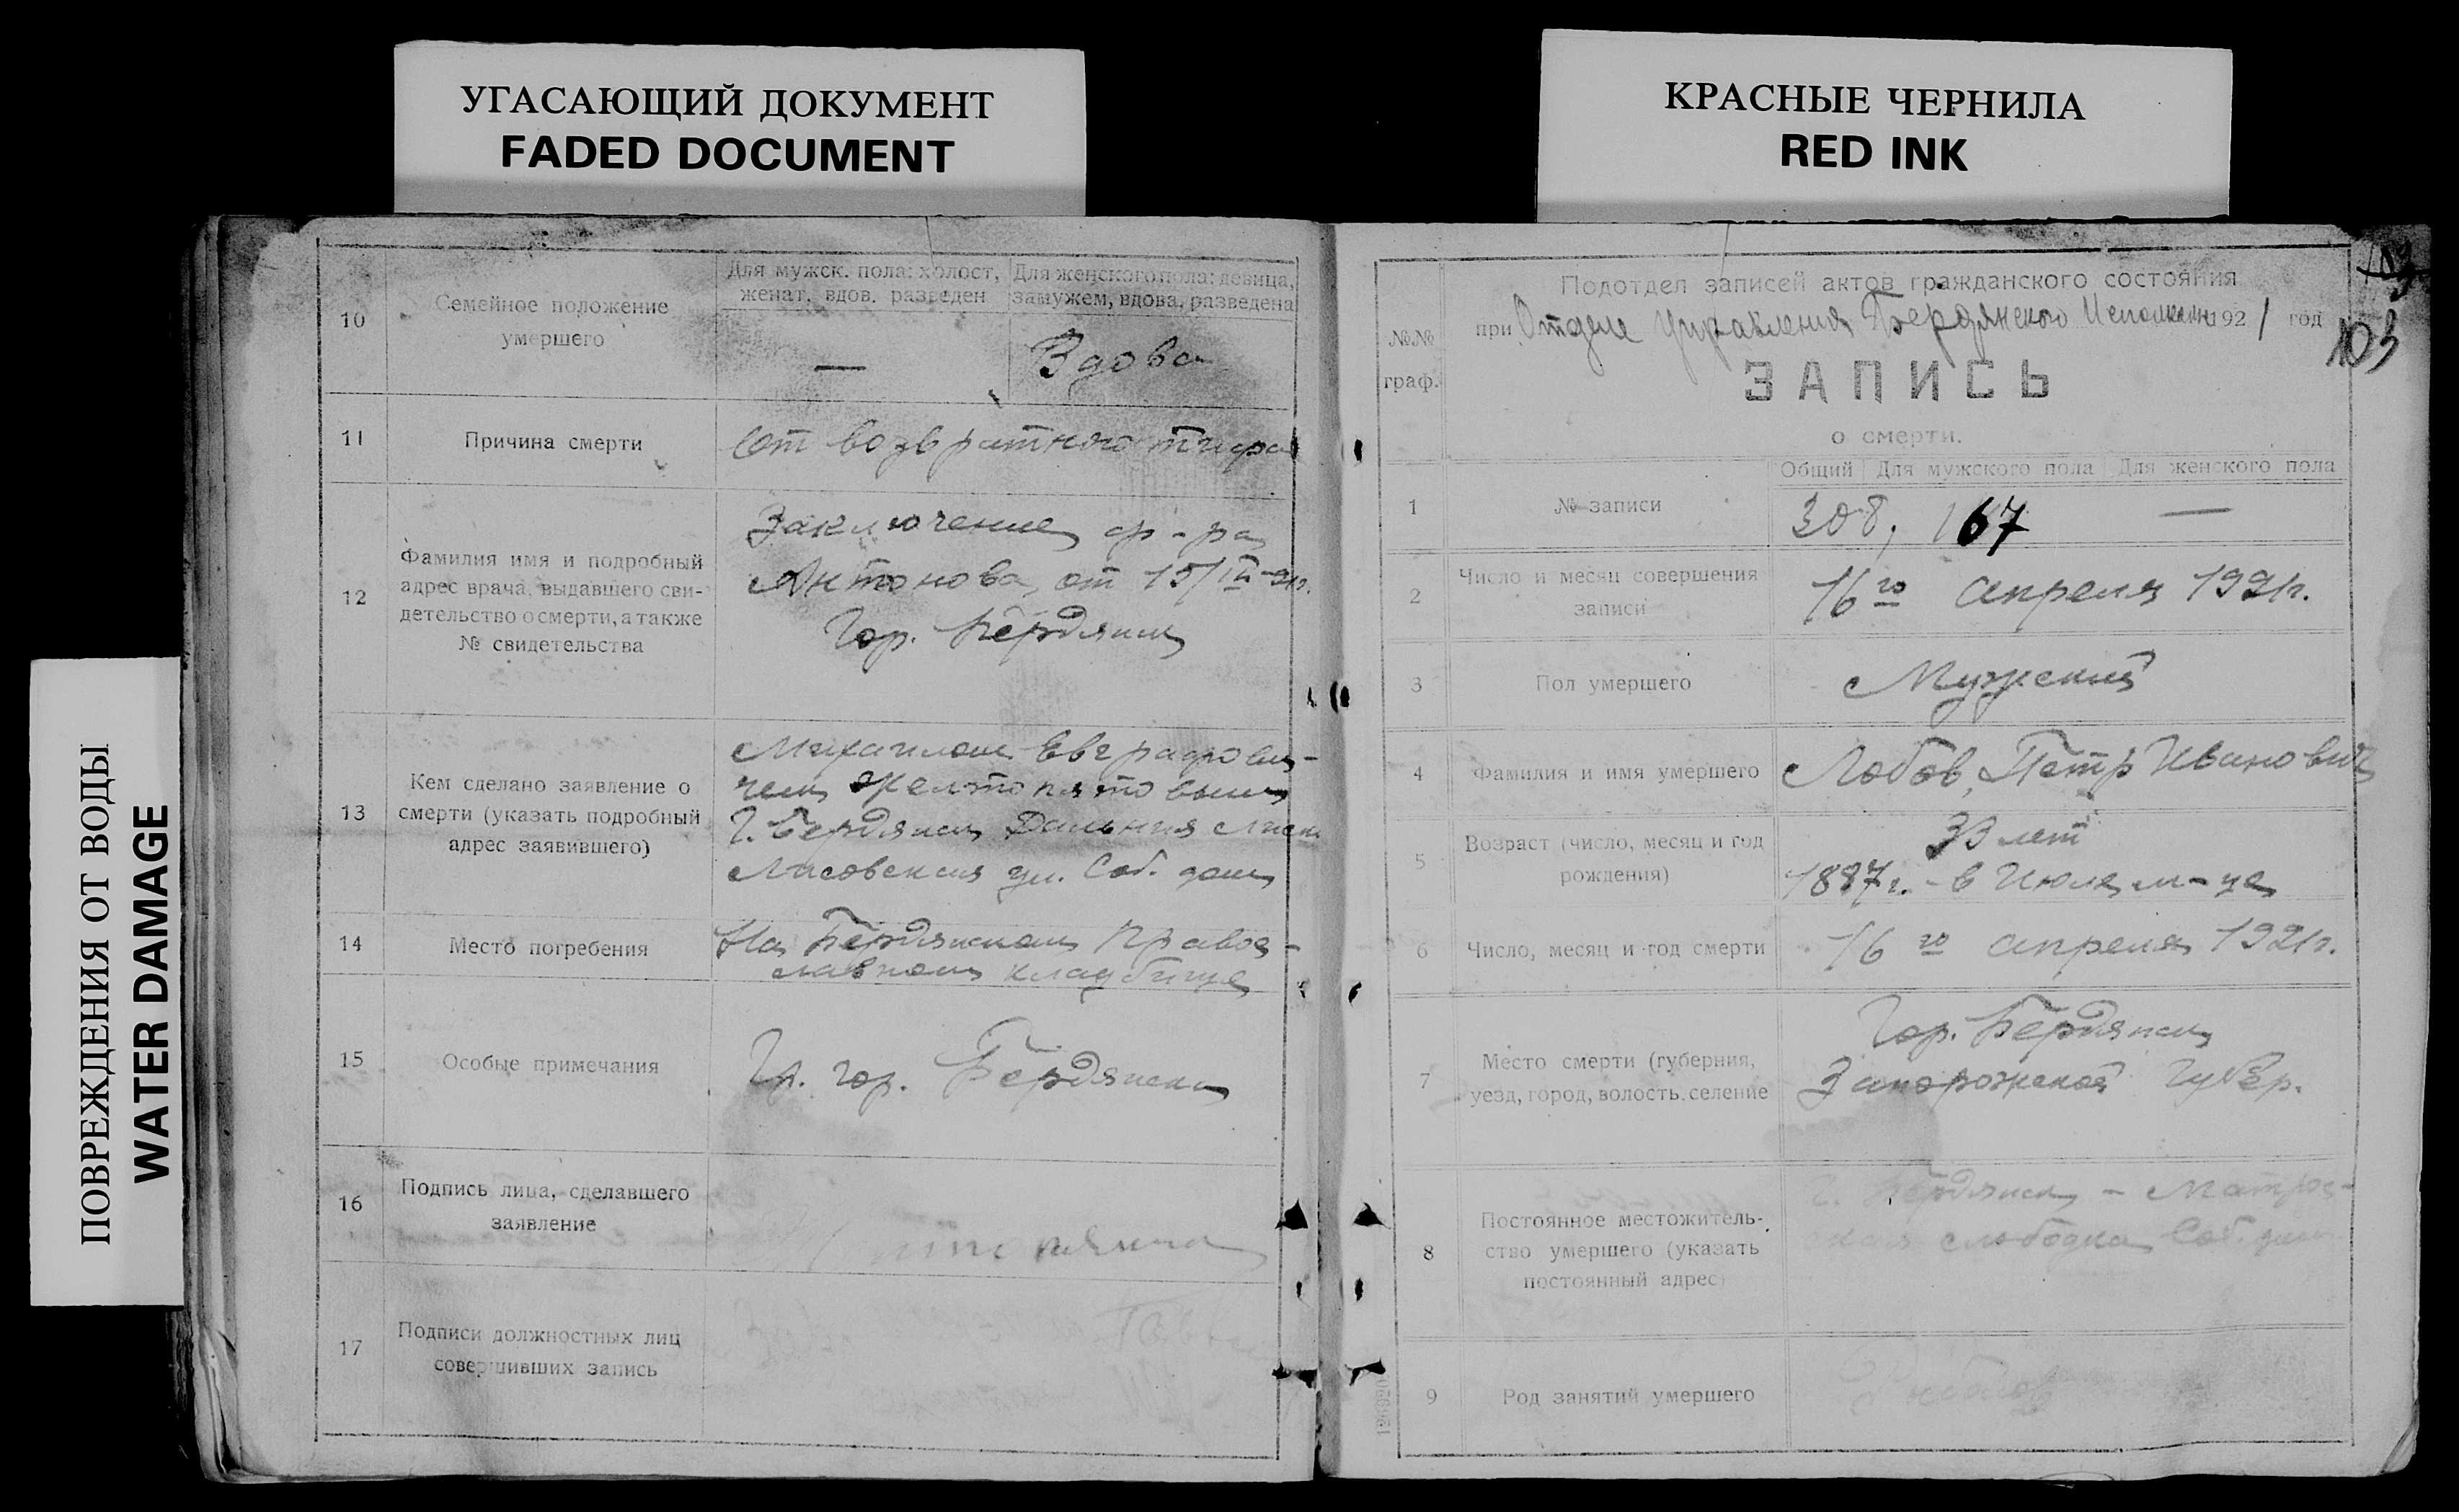 УГАСАЮЩИЙ ДОКУМЕНТ
FADED DOCUMENT
КРАСНЫЕ ЧЕРНИЛА
RED INK
ПОВРЕЖДЕНИЯ ОТ ВОДЫ
WATER DAMAGE
10
Семейное положение
умершего
Для мужск. пола: холост,
женат, вдов. разведен
Для женского пола: девица,
замужем, вдова, разведена
—
Вдова
11
Причина смерти
От возвратного тифа
12
Фамилия имя и подробный
адрес врача, выдавшего сви-
детельство о смерти, а также
№ свидетельства
Заключение
Антонова, от 15/
Гор. Бердянск
13
Кем сделано заявление о
смерти (указать подробный
адрес заявившего)
Михаилом Евграфови-
чем
Г. Бердянск Дальняя
Лисовская ул. Соб. дом
14
Место погребения
На Бердянском Правос-
лавном кладбище
15
Особые примечания
Гр. гор. Бердянска
16
Подпись лица, сделавшего
заявление
17
Подписи должностных лиц
совершивших запись
103
103
№№
граф.
Подотдел записей актов гражданского состояния
при Отделе Управления Бердянского Исполкома 1921 год
ЗАПИСЬ
о смерти.
1
№ записи
Общий
Для мужского пола
Для женского пола
308, 167 —
2
Число и месяц совершения
записи
16го апреля 1921г.
3
Пол умершего
Мужской
4
Фамилия и имя умершего
Лобов, Петр Иванович
5
Возраст (число, месяц и год
рождения)
33 лет
1887г. - в Июле м-це
6
Число, месяц и год смерти
16го апреля 1921г.
7
Место смерти (губерния,
уезд, город, волость, селение
Гор. Бердянск
Запорожской Губер.
8
Постоянное местожитель-
ство умершего (указать
постоянный адрес)
г. Бердянск - Матрос-
ская слободка Соб. дом
9
Род занятий умершего